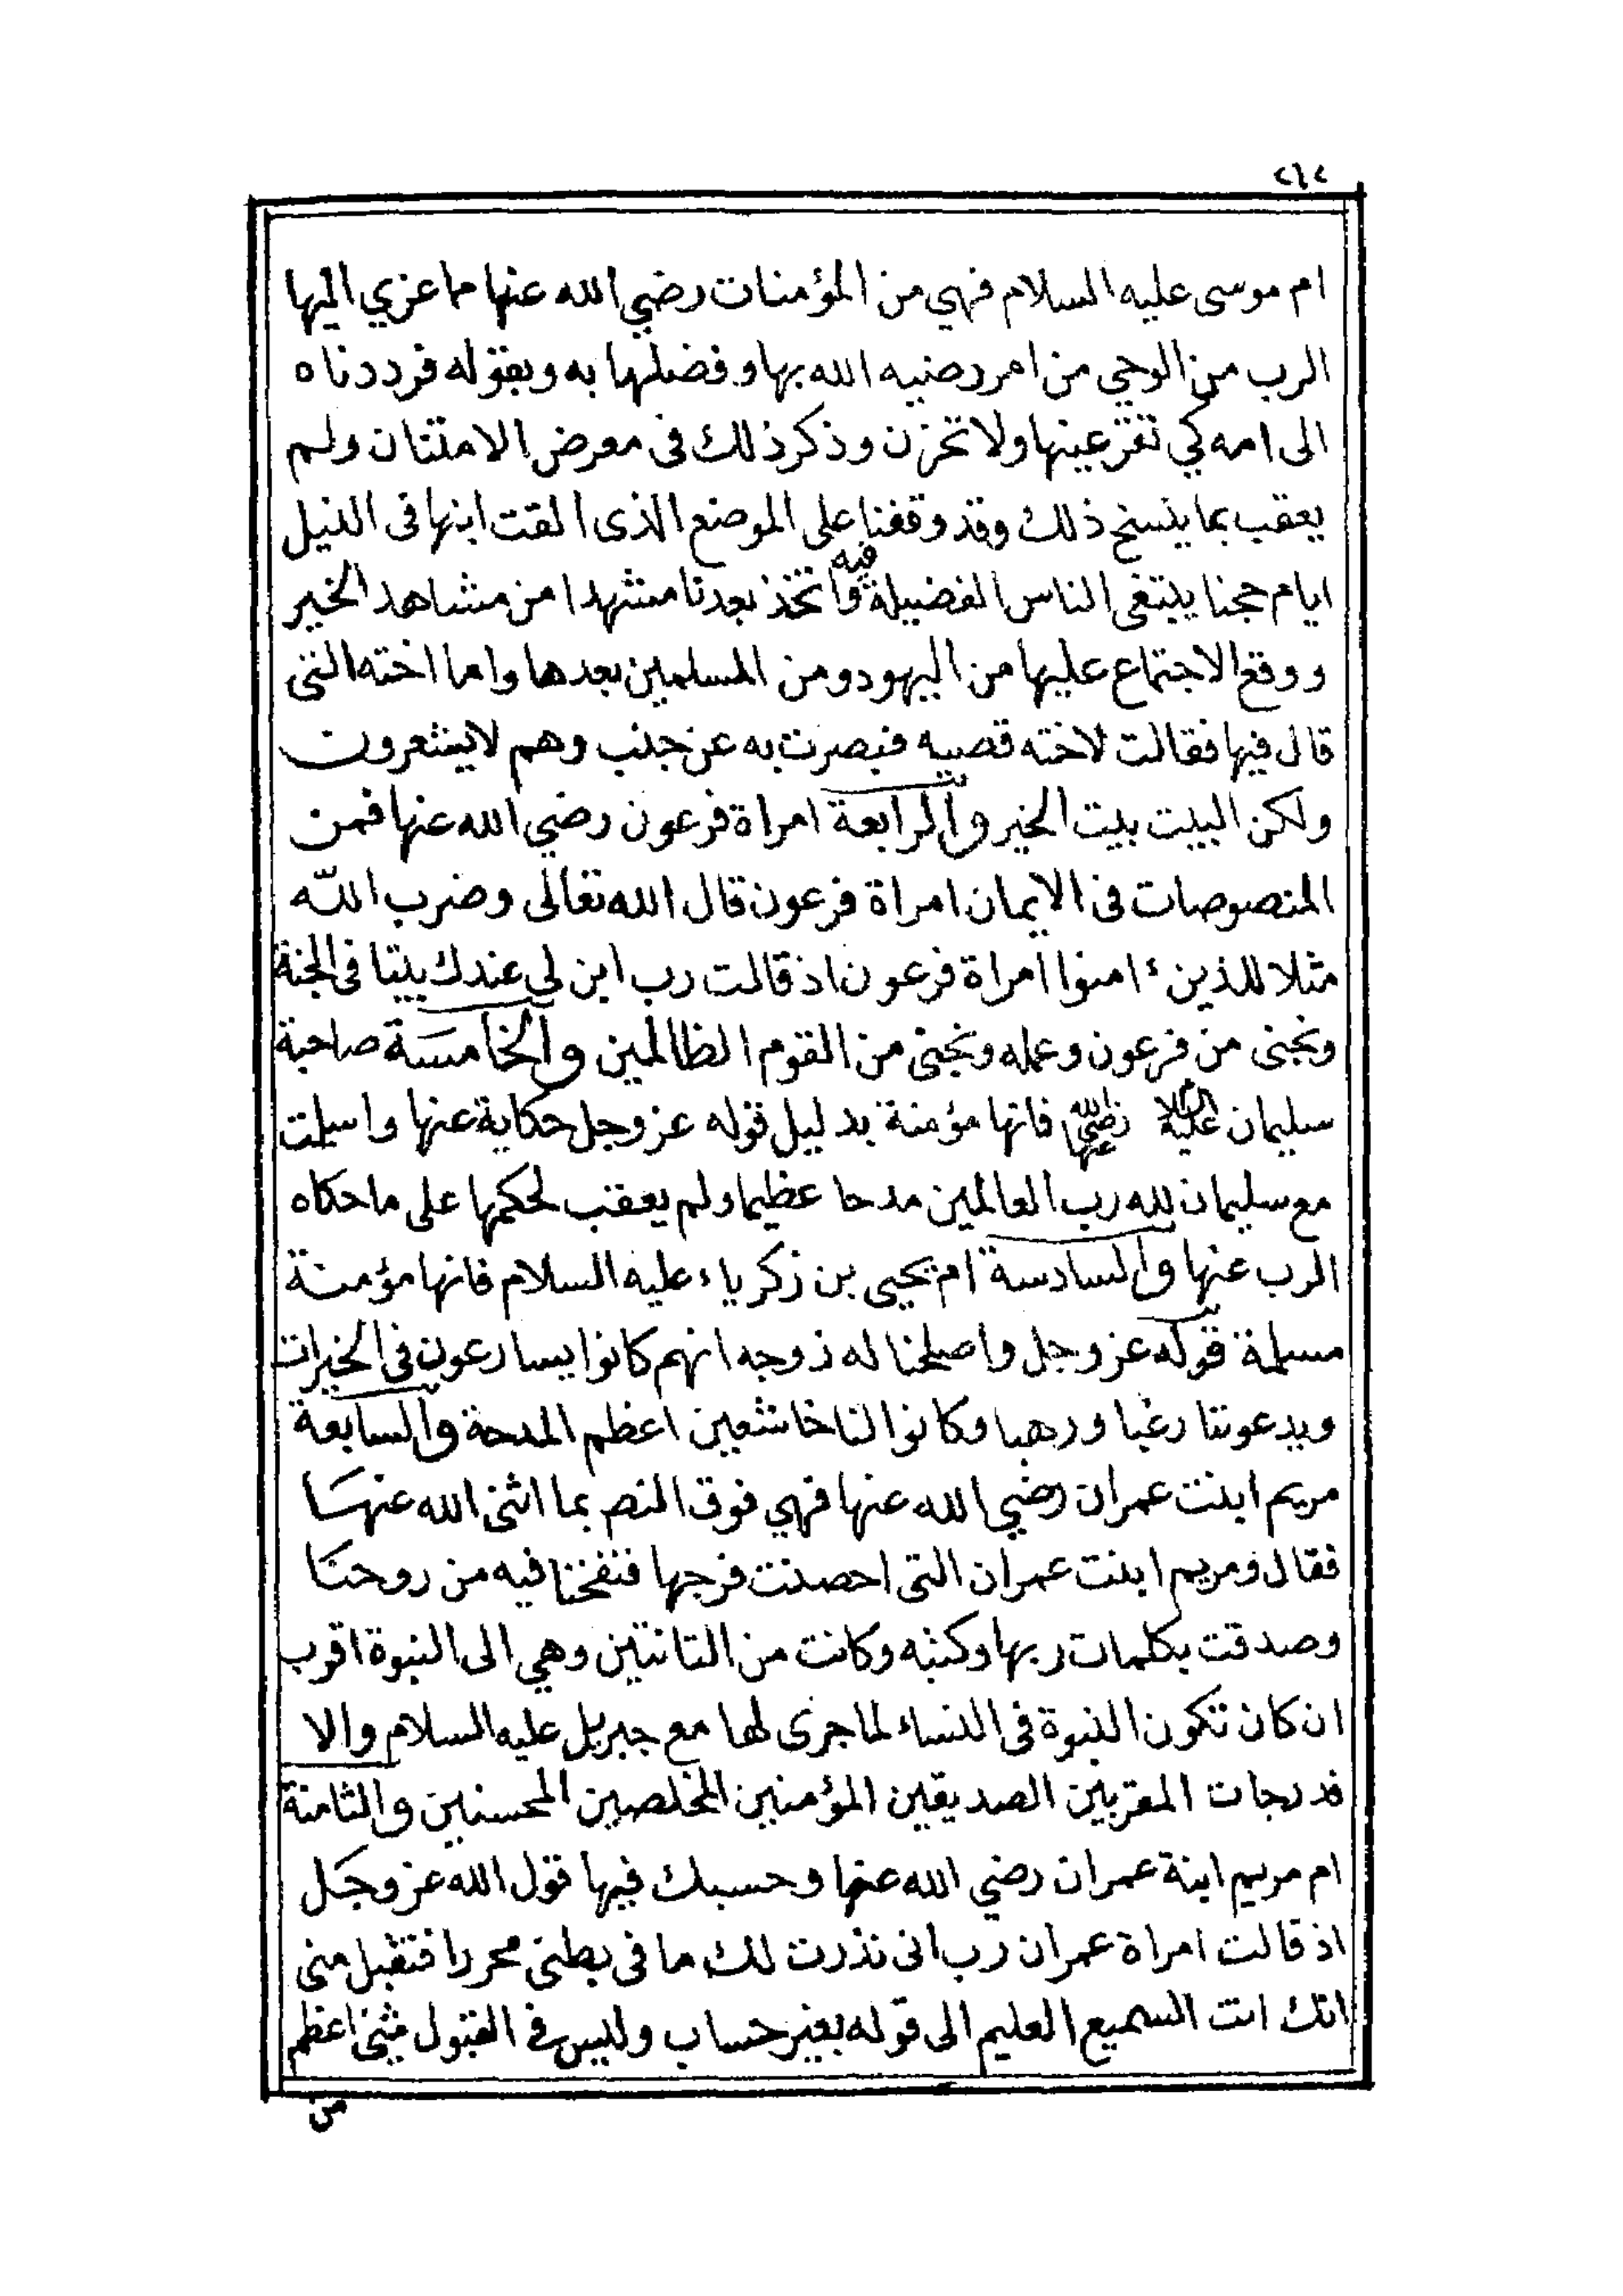 ٢١٢
ام موسى عليه السلام فهي من المؤمنات رضي الله عنها مما عزي اليها
الرب من الوحي من امر رضيه الله بها وفضلها به وبقوله فرددناه
الى امه كي تقر عينها ولا تحزن وذكر ذلك في معرض الامتنان ولم
يعقب بما ينسخ ذلك وقد وقفنا على الموضع الذي القت ابنها في النيل
ايام حجنا يبتغي الناس الفضيلة فيه واتخذ بعدنا مشهدا من مشاهد الخير
ووقع الاجتماع عليها من اليهود ومن المسلمين بعدها واما اخته التي
قال فيها فقالت لاخته قصيه فبصرت به عن جنب وهم لا يشعرون
ولكن البيت بيت الخير والرابعة امراة فرعون رضي الله عنها فمن
المنصوصات في الايمان امراة فرعون قال الله تعالى وضرب الله
مثلا للذين ءامنوا امراة فرعون اذ قالت رب ابن لي عندك بيتا في الجنة
ونجني من فرعون وعمله ونجني من القوم الظالمين والخامسة صاحبة
سليمان عليه السلام رضي الله عنها فانها مؤمنة بدليل قوله عز وجل حكاية عنها واسلمت
مع سليمان لله رب العالمين مدحا عظيما ولم يعقب لحكمها على ما حكاه
الرب عنها والسادسة ام يحيى بن زكرياء عليه السلام فانها مؤمنة
مسلمة قوله عز وجل واصلحنا له زوجه انهم كانوا يسارعون في الخيرات
ويدعوننا رغبا ورهبا وكانوا لنا خاشعين اعظم المدحة والسابعة
مريم ابنت عمران رضي الله عنها فهي فوق النص بما اثنى الله عنها
فقال ومريم ابنت عمران التي احصنت فرجها فنفخنا فيه من روحنا
وصدقت بكلمات ربها وكتبه وكانت من القانتين وهي الى النبوة اقرب
ان كان تكون النبوة في النساء لما جرى لها مع جبريل عليه السلام والا
فدرجات المقربين الصديقين المؤمنين المخلصين المحسنين والثامنة
ام مريم ابنة عمران رضي الله عنها وحسبك فيها قول الله عز وجل
اذ قالت امراة عمران رب اني نذرت لك ما في بطني محررا فتقبل مني
انك انت السميع العليم الى قوله بغير حساب وليس في القبول شيئ اعظم
من